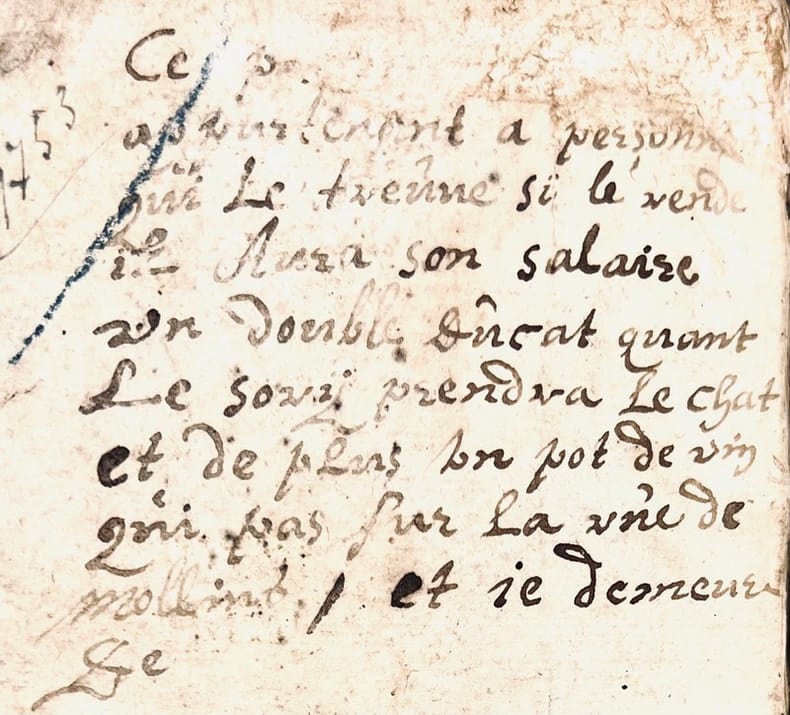 1753
Ce p
appurtenant a personne
qui Le treûue si le vende
il Aura son salaire
vn double dûcat quant
Le sovij prendra Le chat
et de plus vn pot de vin
qûi pas sur La vûe de
mollint, et ie demeure
De